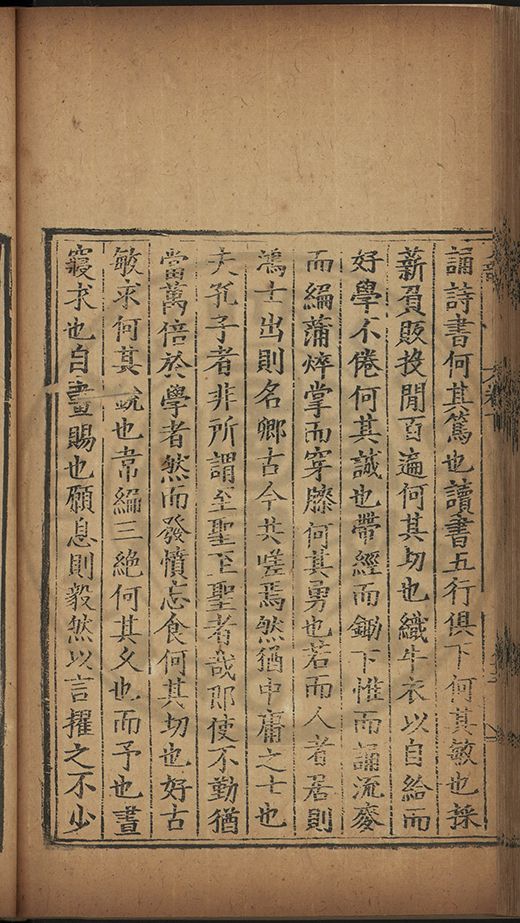 誦詩書何其篤也讀書五行俱下何其敏也採
薪負販投閒百遍何其切也織牛衣以自給而
好學不倦何其誠也帶經而鋤下惟而誦流麥
而編蒲焠掌而穿膝何其勇也若而人者居則
鴻士出則名卿古今共嗟焉然猶中庸之士也
夫孔子者非所謂至聖至聖者哉即使不勤猶
當萬倍於學者然而發憤忘食何其切也好古
敏求何其銳也韋編三絶何其久也而予也晝
寢求也自畫賜也願息則毅然以言擢之不少